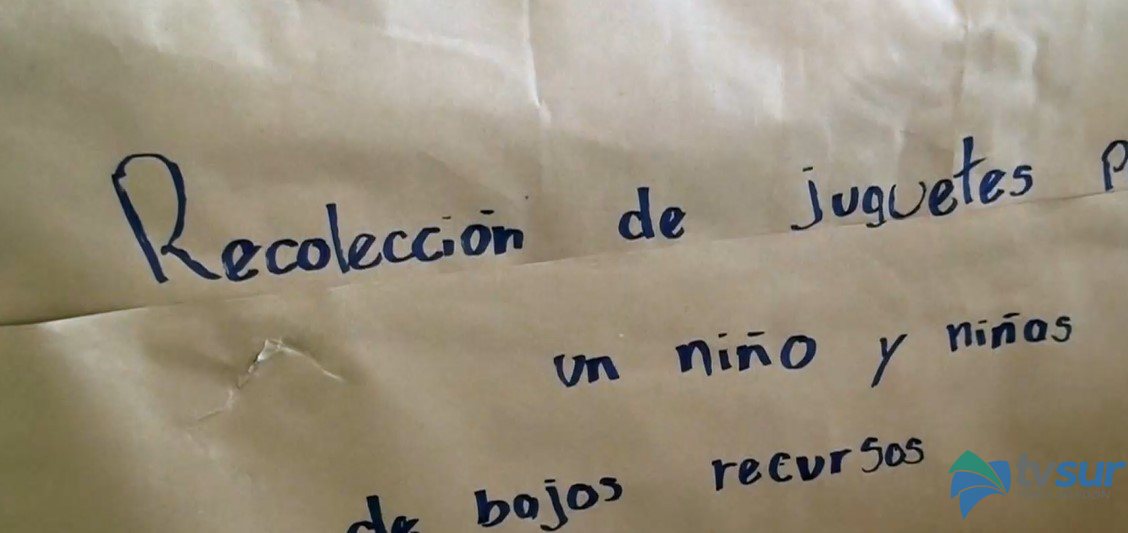 Recolección de juguetes p
un niño y niñas
de bajos recursos
tvsur